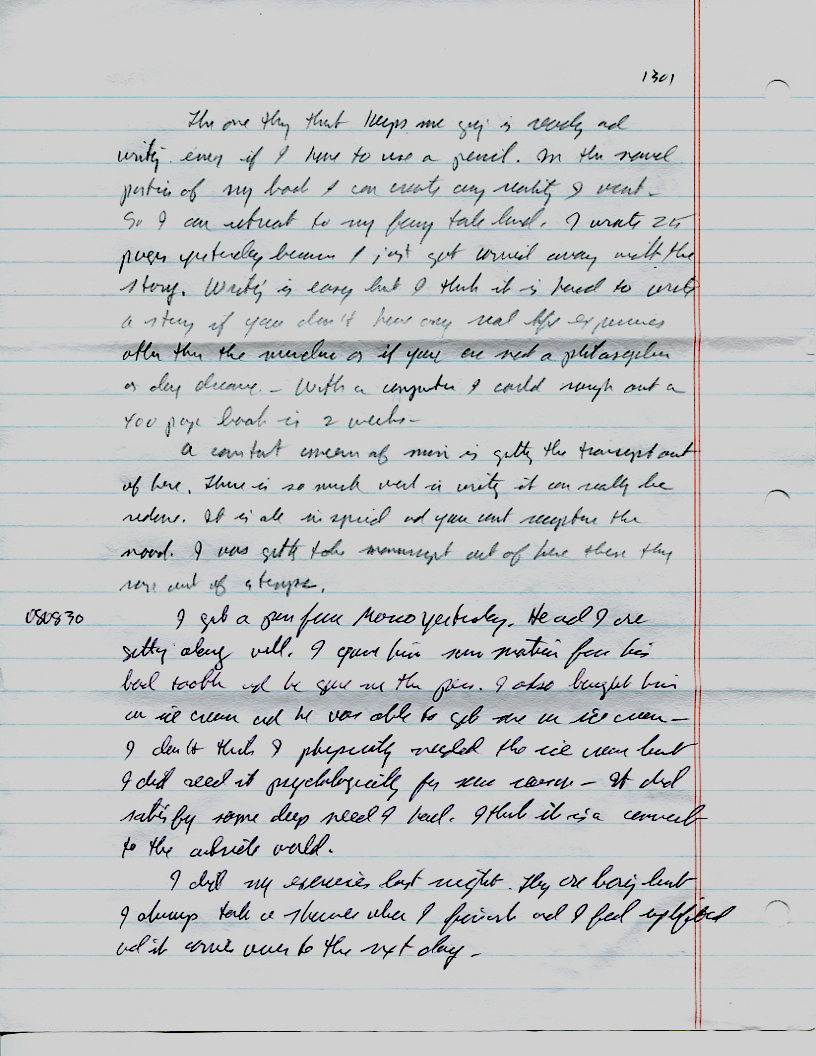 1301
The one thing that keeps me going is reading and
writing even if I have to use a pencil. In the novel
portion of my book I can create any reality I want -
So I can retreat to my fairy tale land. I wrote 25
pages yesterday because I just got carried away with the
story. Writing is easy but I think it is hard to write
a story if you don't have any real life experiences
other than the mundane or if you are not a philosopher
or day dreamer. - With a computer I could rough out a
400 page book in 2 weeks -
A constant concern of mine is getting the transcript out
of here. There is so much went in writing it can really be
redone. It is all inspired and you can't recapture the
mood. I was getting take manuscript out of here these they
out of
080830
I got a pen from Mono yesterday. He and I are
getting along well. I gave him some for his
bad tooth and he gave me the pen. I also bought him
an ice cream and he was able to get me an ice cream -
I don't think I physically needed the ice cream but
I did need it psychologically for some reason - It did
satisfy some deep need I had. I think it is a connect
to the outside world.
I did my exercises last night. They are boring but
I always take a shower when I finish and I feel uplifted
and it carries over to the next day -